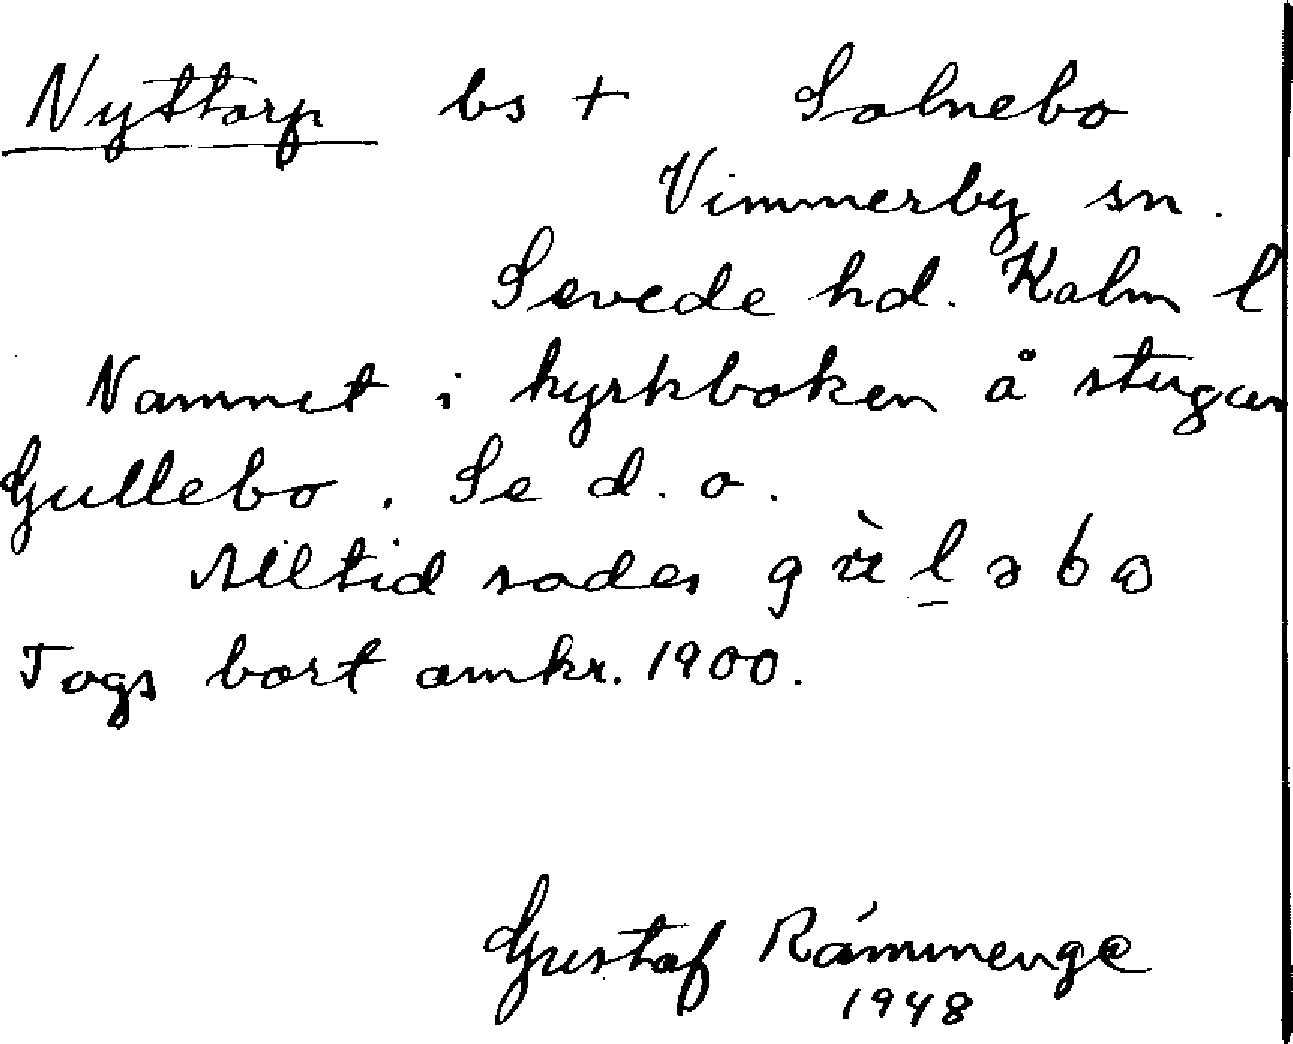 Nyttorp bs + Solnebo
Vimmerby sn.
Sevede hd. Kalm l
Namnet i kyrkboken å stugan
Gullebo. Se d. o.
Alltid sades
Togs bort omkr. 1900.
Gustaf Rámmenge
1948